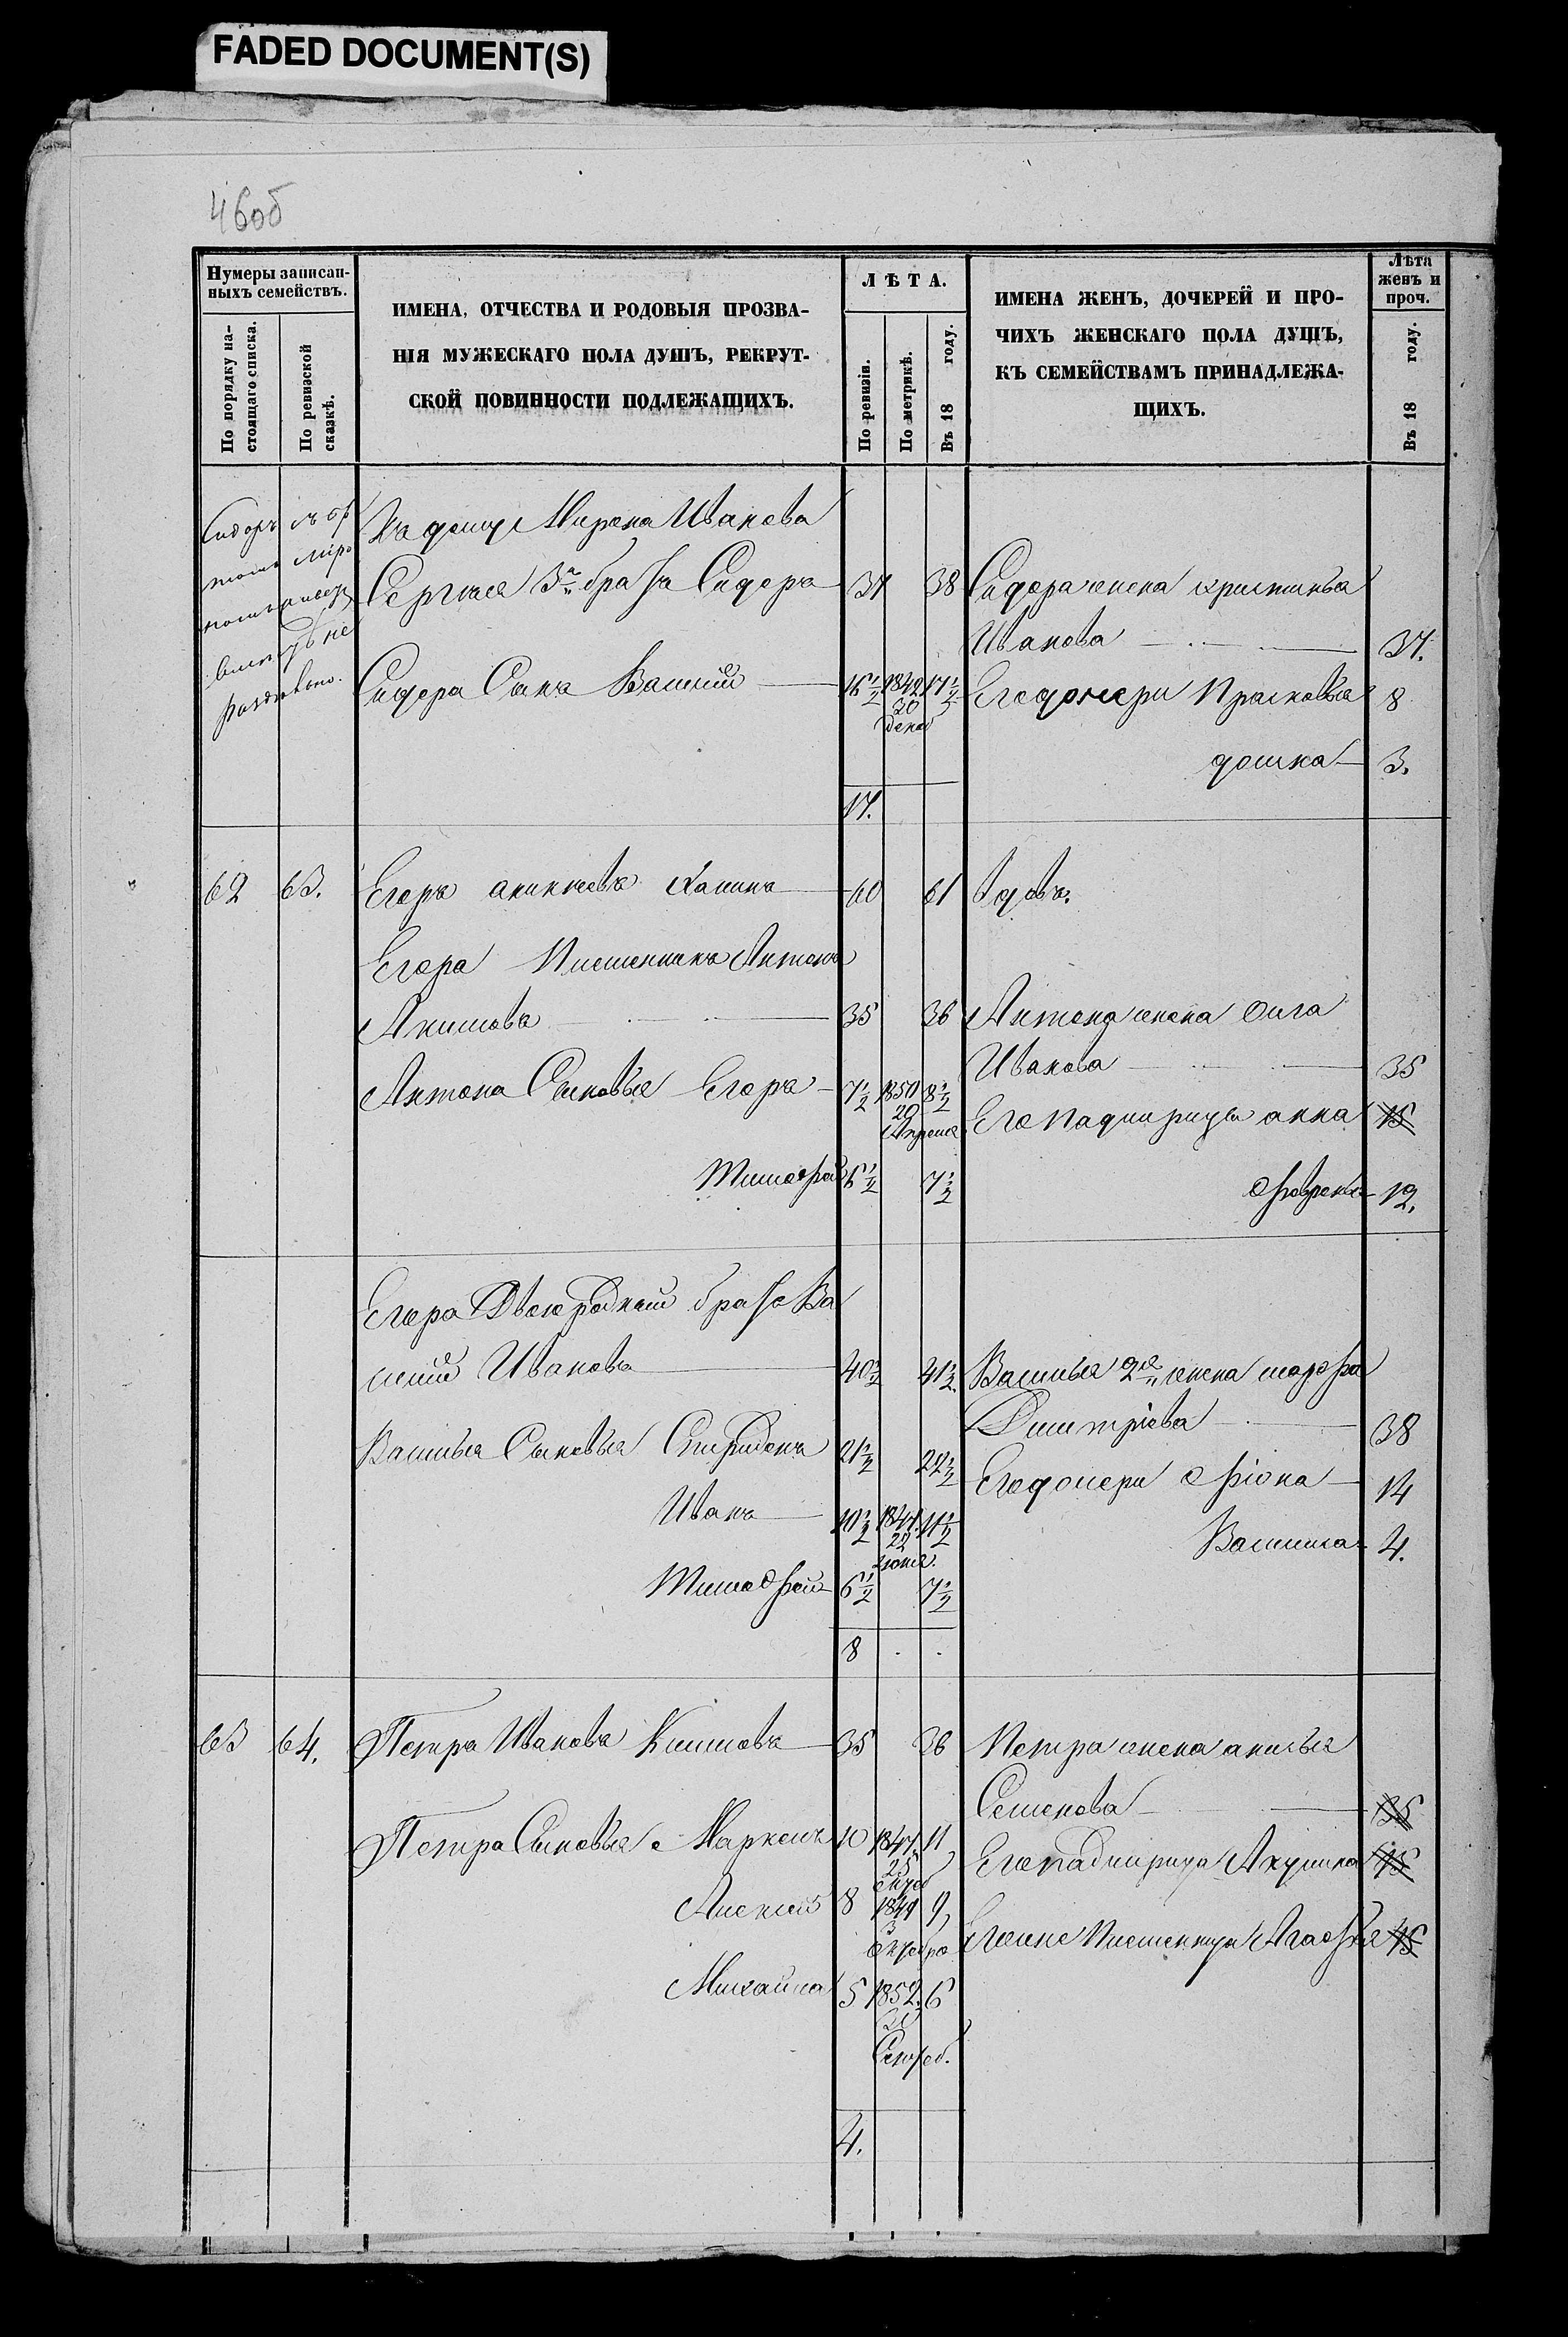 FADED DOCUMENT(S)
46об
Нумеры записан-
ныхъ семействъ.
По порядку на-
стоящаго списка.
По ревизской
сказкѣ.
ИМЕНА, ОТЧЕСТВА И РОДОВЫЯ ПРОЗВА-
НІЯ МУЖЕСКАГО ПОЛА ДУШЪ, РЕКРУТ-
СКОЙ ПОВИННОСТИ ПОДЛЕЖАЩИХЪ.
ЛѢТА.
По ревизіи.
По метрикѣ.
Въ 18 году.
ИМЕНА ЖЕНЪ, ДОЧЕРЕЙ И ПРО-
ЧИХЪ ЖЕНСКАГО ПОЛА ДУШЪ,
КЪ СЕМЕЙСТВАМЪ ПРИНАДЛЕЖА-
ЩИХЪ.
Лѣта
женъ и
проч.
Въ 18 году.
Сидоръ съ бр
Мирона Иванова
Сергѣя 3й братъ Сидоръ 37 38 Сидора жена христинья
Иванова 37.
Сидора Сынъ Василий 16½ 1842 17½ Его дочери Прасковья 8
30
декаб
домка 3.
17.
62 63. Егоръ аникѣевъ 60 61 Вдовъ.
Егора Племянникъ Антонъ
Акимовъ 35 36 Антона жена Олга
Иванова 35
Антона Сыновья Егоръ 7½ 1850 8½
20
Апреля
Его падчирицы анна 15
Тимофей 6½ 7½
Фавронья 12.
Егора Двоюродный братъ Ва
силий Ивановъ 40½ 41½. Василья 2я жена марфа
Дмитріева 38
Василья Сыновья Спиридонъ 21½ 22½
Его дочери Фіона 14
Иванъ 10½ 1847 11½
22
юня.
Василиса 4.
Тимофей 6½ 7½
8
63 64. Петръ Ивановъ Климовъ 35 36 Петра жена анисья
Семенова 35
Петра Сыновья Маркелъ 10 1847 11
25
Его падчирица Акулина 15
Алексей 8 1849 9,
3
октебря
Его же Племенница Агафья 15
Михаила 5 1852. 6
20
Сентеб.
4.